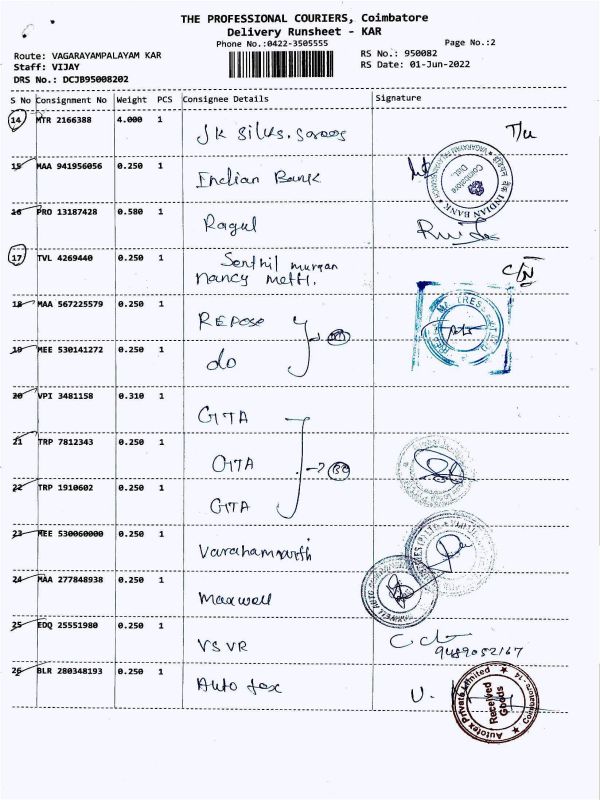 THE PROFESSIONAL COURIERS, Coimbatore
Delivery Runsheet - KAR
Phone No.:0422-3505555
Page No.:2
Route: VAGARAYAMPALAYAM KAR
RS No.: 950082
Staff: VIJAY
RS Date: 01-Jun-2022
DRS No.: DCJB95008202
S No Consignment No Weight PCS Consignee Details Signature
14 MTR 2166388 4.000 1 JK Silks. Sarees T/u
15 MAA 941956056 0.250 1 Indian Bank
INDIAN BANK
Coimbatore
Dist.
16 PRO 13187428 0.580 1 Ragul
17 TVL 4269440 0.250 1 Senthil murgan
nancy metti. C/N
18 MAA 567225579 0.250 1 REPOSE
19 MEE 530141272 0.250 1 do
20 VPI 3481158 0.310 1 GTA
21 TRP 7812343 0.250 1 GTA
22 TRP 1910602 0.250 1 GTA
23 MEE 530060000 0.250 1
24 MAA 277848938 0.250 1 Maxwell
25 EDQ 25551980 0.250 1 VSVR
9489052167
26 BLR 280348193 0.250 1 Auto tex U.
Autotex Private Limited
Received
Goods
Coimbatore - 14